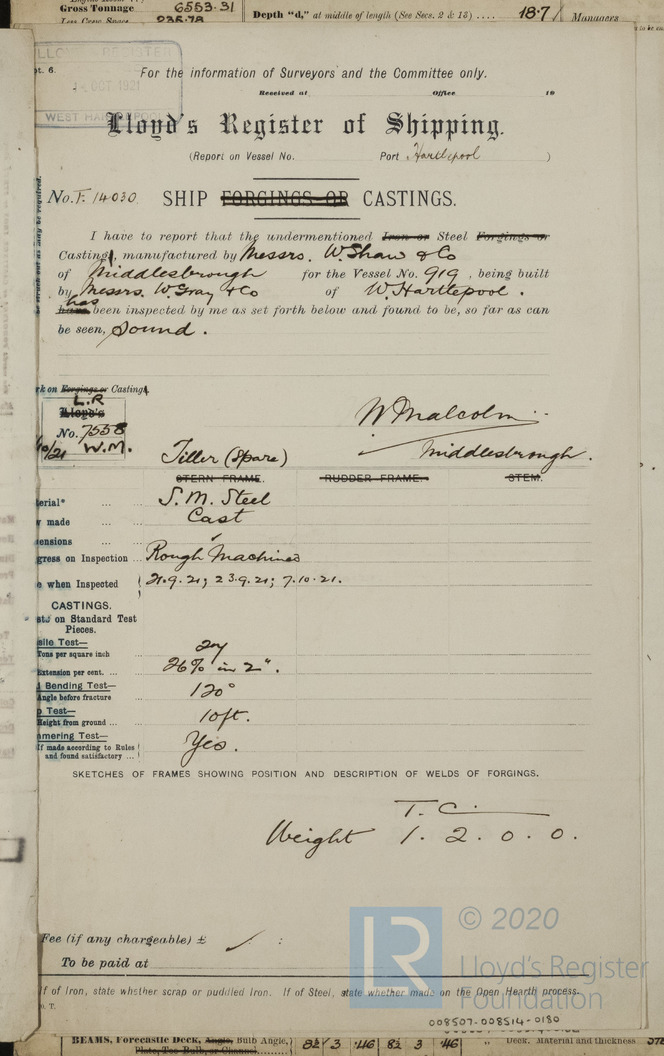 Gross Tonnage 6553.31
Less Crew Space 235.78
Depth "d," at middle of length (See Secs. 2 & 13) .... 18.7
Managers
LLOYD'S REGISTER
OCT 1921
WEST HARTLEPOOL
pt. 6.
For the information of Surveyors and the Committee only.
Received at Office 19
Lloyd's Register of Shipping.
(Report on Vessel No. Port Hartlepool )
No. F. 14030
SHIP FORGINGS OR CASTINGS.
I have to report that the undermentioned Iron or Steel Forgings or
Castings, manufactured by Messrs. W. Shaw & Co
of Middlesbrough for the Vessel No. 919, being built
by Messrs. W Gray & Co of W. Hartlepool.
has
have been inspected by me as set forth below and found to be, so far as can
be seen, Sound.
rk on Forgings or Castings
L.R
Lloyd's
No. 7558
10/21 W.M.
W Malcolm
Middlesbrough.
Tiller (Spare)
STERN FRAME. RUDDER FRAME. STEM.
erial* ... S. M. Steel
w made ... Cast
ensions ...
gress on Inspection ... Rough Machined
e when Inspected 21.9.21; 23.9.21; 7.10.21.
CASTINGS.
sts on Standard Test
Pieces.
sile Test—
Tons per square inch
Extension per cent. ... 26% in 2".
d Bending Test—
Angle before fracture 120°
p Test—
Height from ground ... 10ft.
mmering Test—
If made according to Rules
and found satisfactory ... Yes.
SKETCHES OF FRAMES SHOWING POSITION AND DESCRIPTION OF WELDS OF FORGINGS.
T. C.
Weight 1. 2. 0. 0.
Fee (if any chargeable) £ :
To be paid at
If of Iron, state whether scrap or puddled Iron. If of Steel, state whether made on the Open Hearth process.
© 2020
Lloyd's Register
Foundation
008507-008514-0180
BEAMS, Forecastle Deck, Angle, Bulb Angle,
Plate, Tee Bulb, or Channel
8½ 3 .46 8½ 3 .46
Deck. Material and thickness